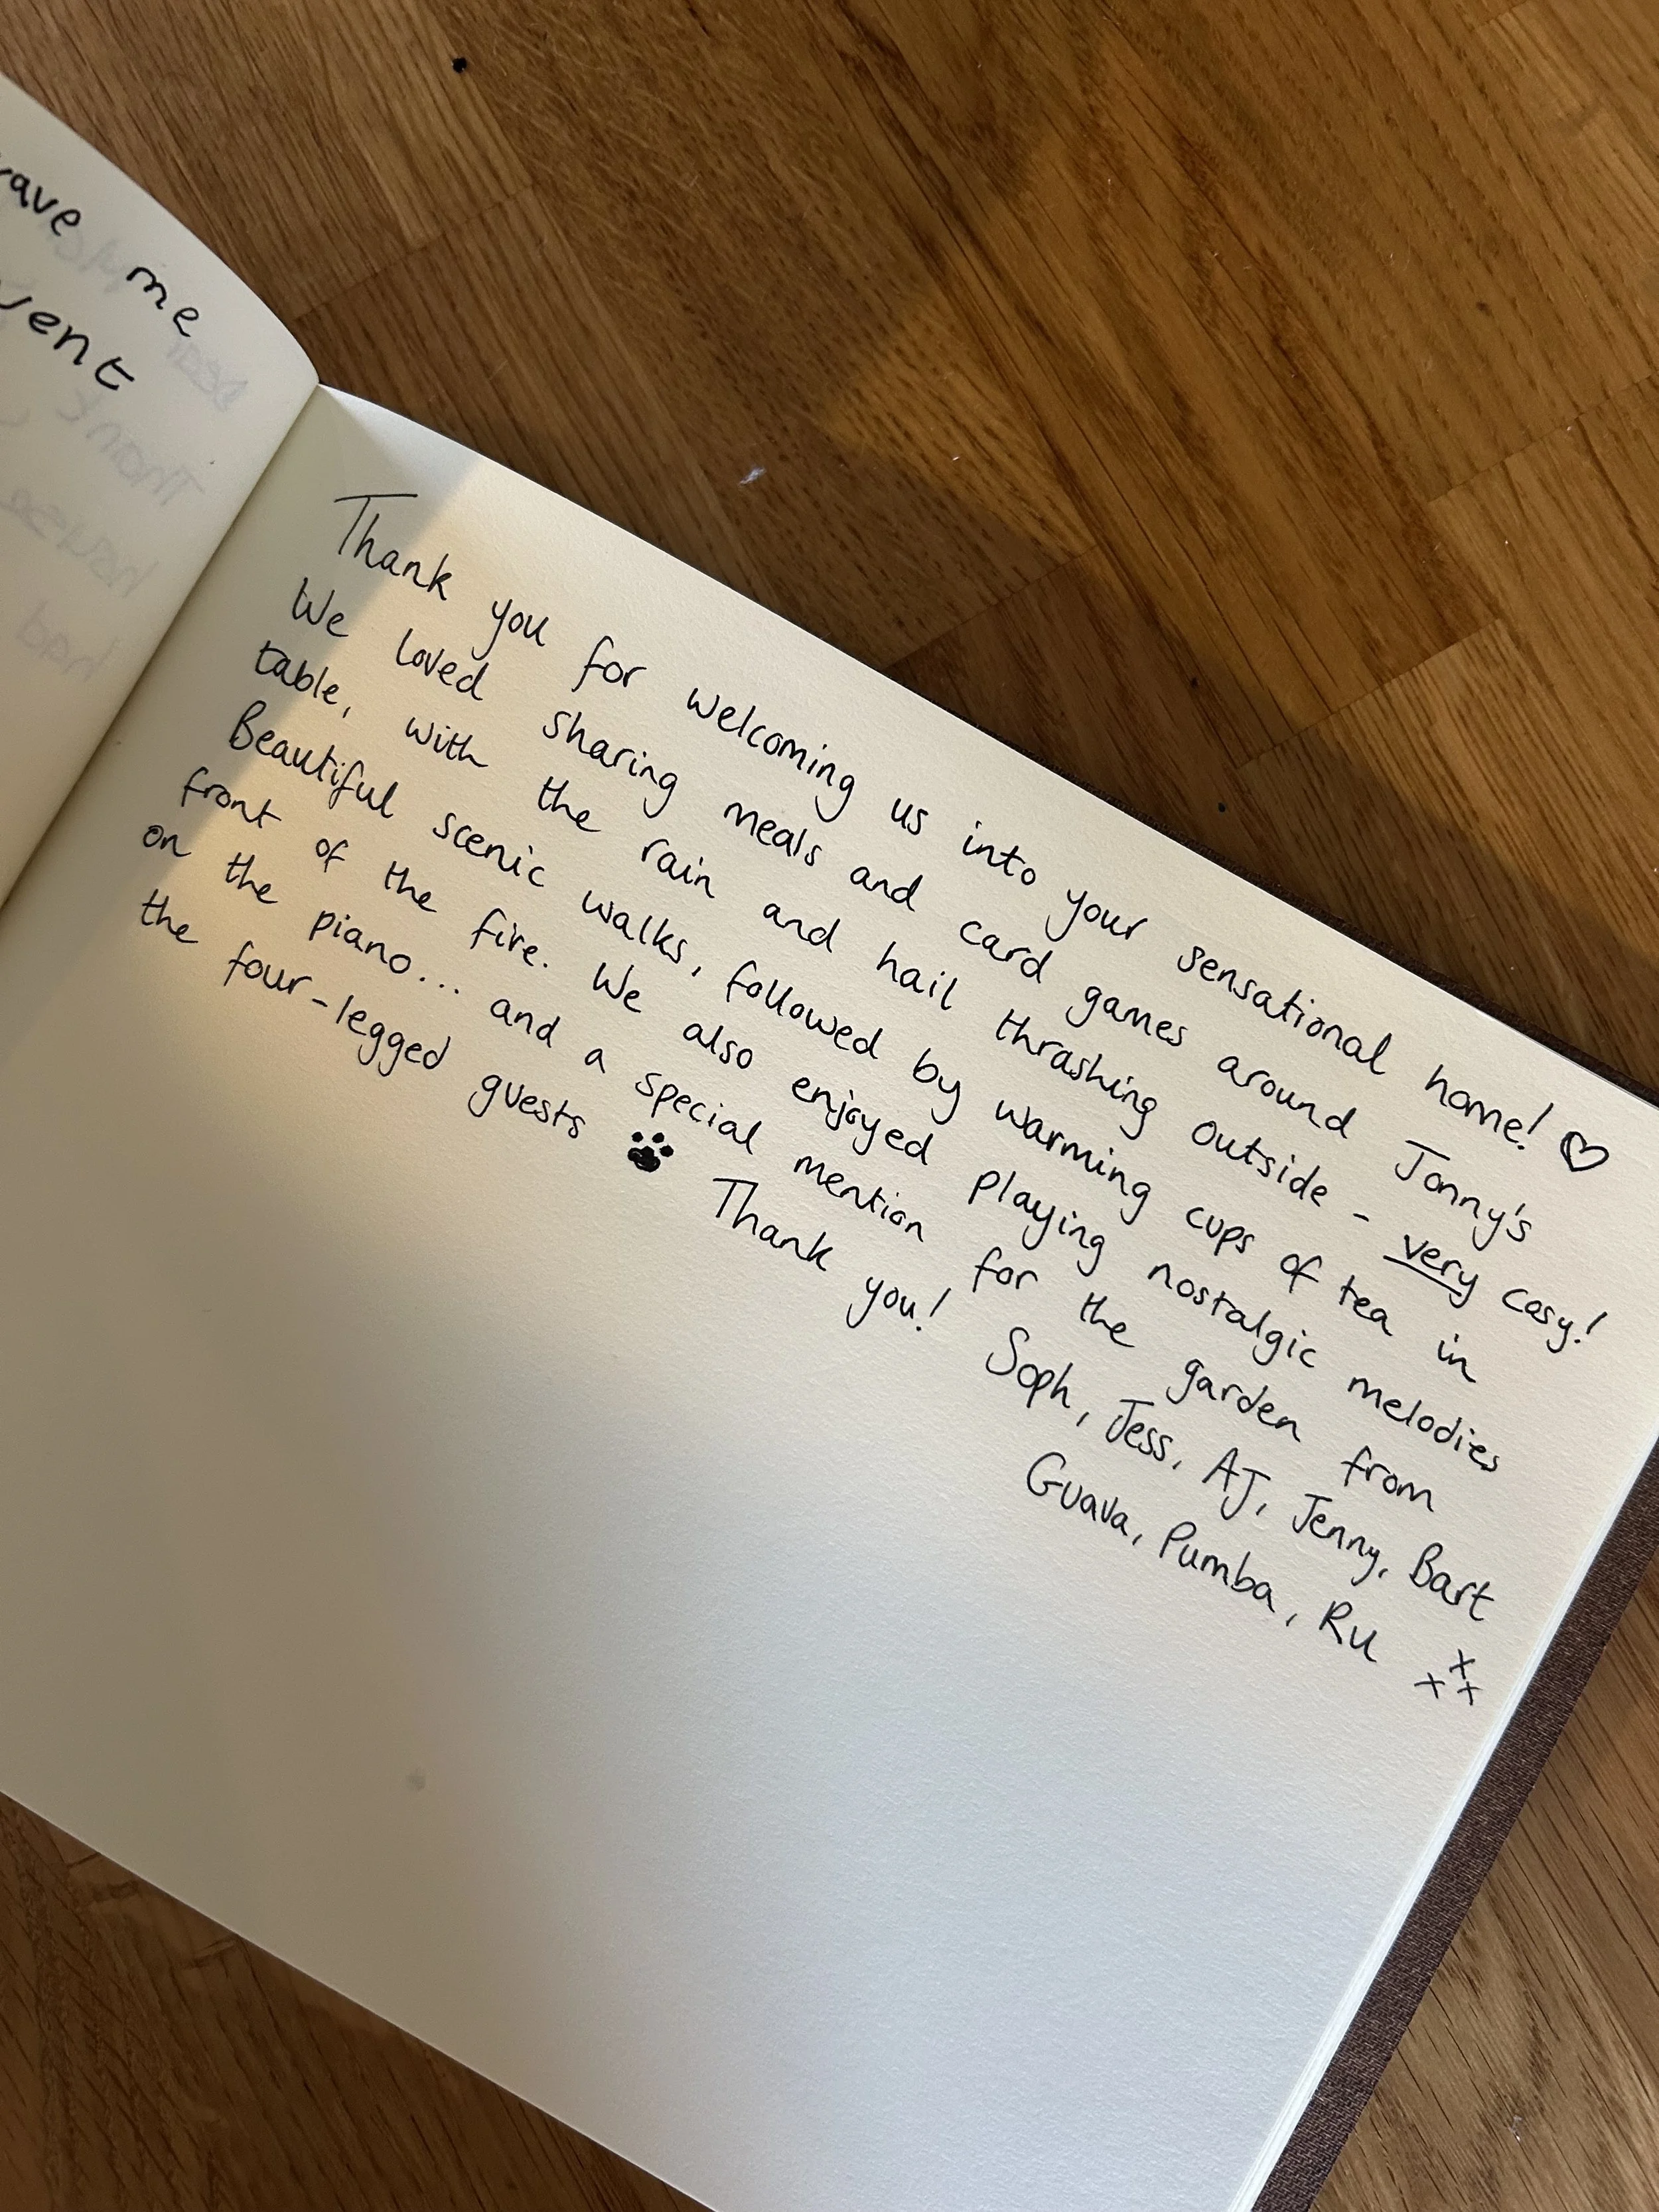 me
Thank you for welcoming us into your sensational home! ♡
We loved sharing meals and card games around Jonny's
table, with the rain and hail thrashing outside - very cosy!
Beautiful scenic walks, followed by warming cups of tea in
front of the fire. We also enjoyed playing nostalgic melodies
on the piano... and a special mention for the garden from
the four-legged guests 🐾 Thank you!
Soph, Jess, AJ, Jenny, Bart
Guava, Pumba, Ru xxx